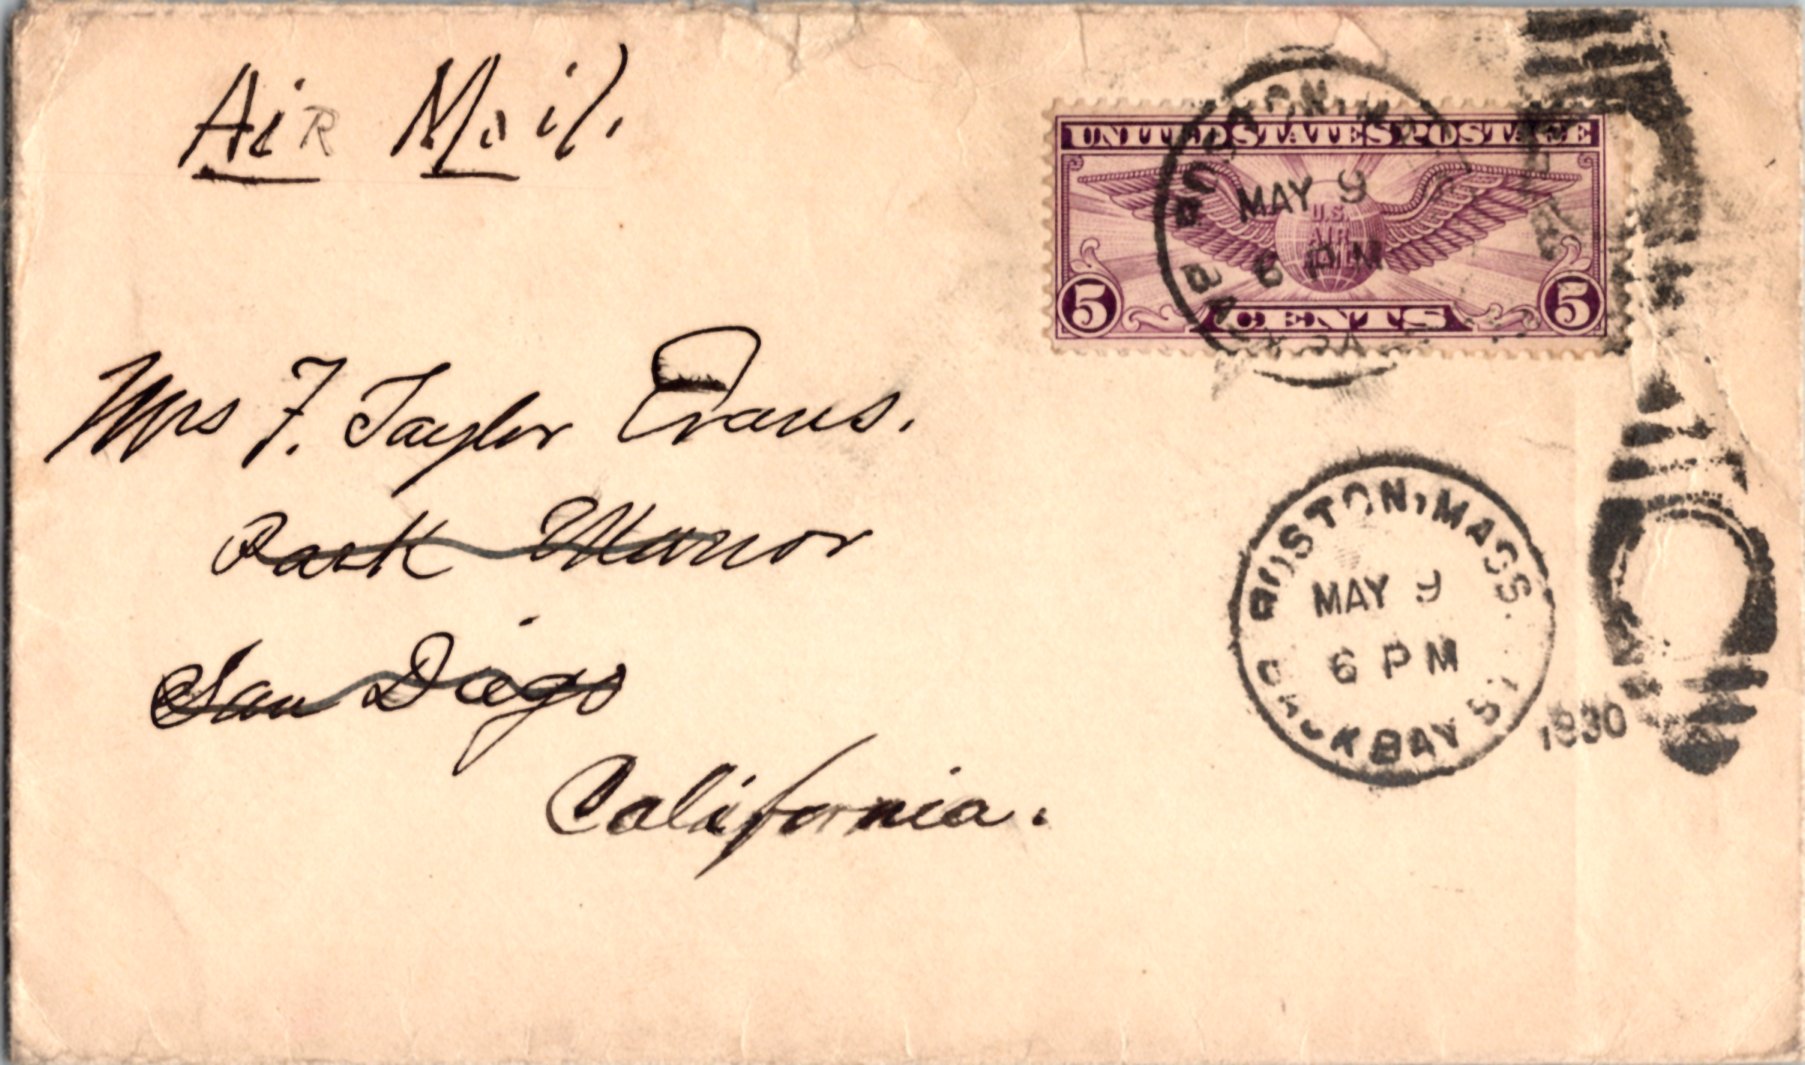 Air Mail.
UNITED STATES POSTAGE
U.S.
AIR
MAIL
5 CENTS 5
BOSTON, MASS.
MAY 9
6 PM
BACK BAY STA
Mrs F. Taylor Evans.
Park Manor
San Diego
California.
BOSTON, MASS.
MAY 9
6 PM
BACK BAY ST
1930